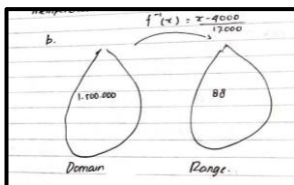 f⁻¹(x) = x - 4000 / 17.000
b.
1.500.000 88
Domain Range.